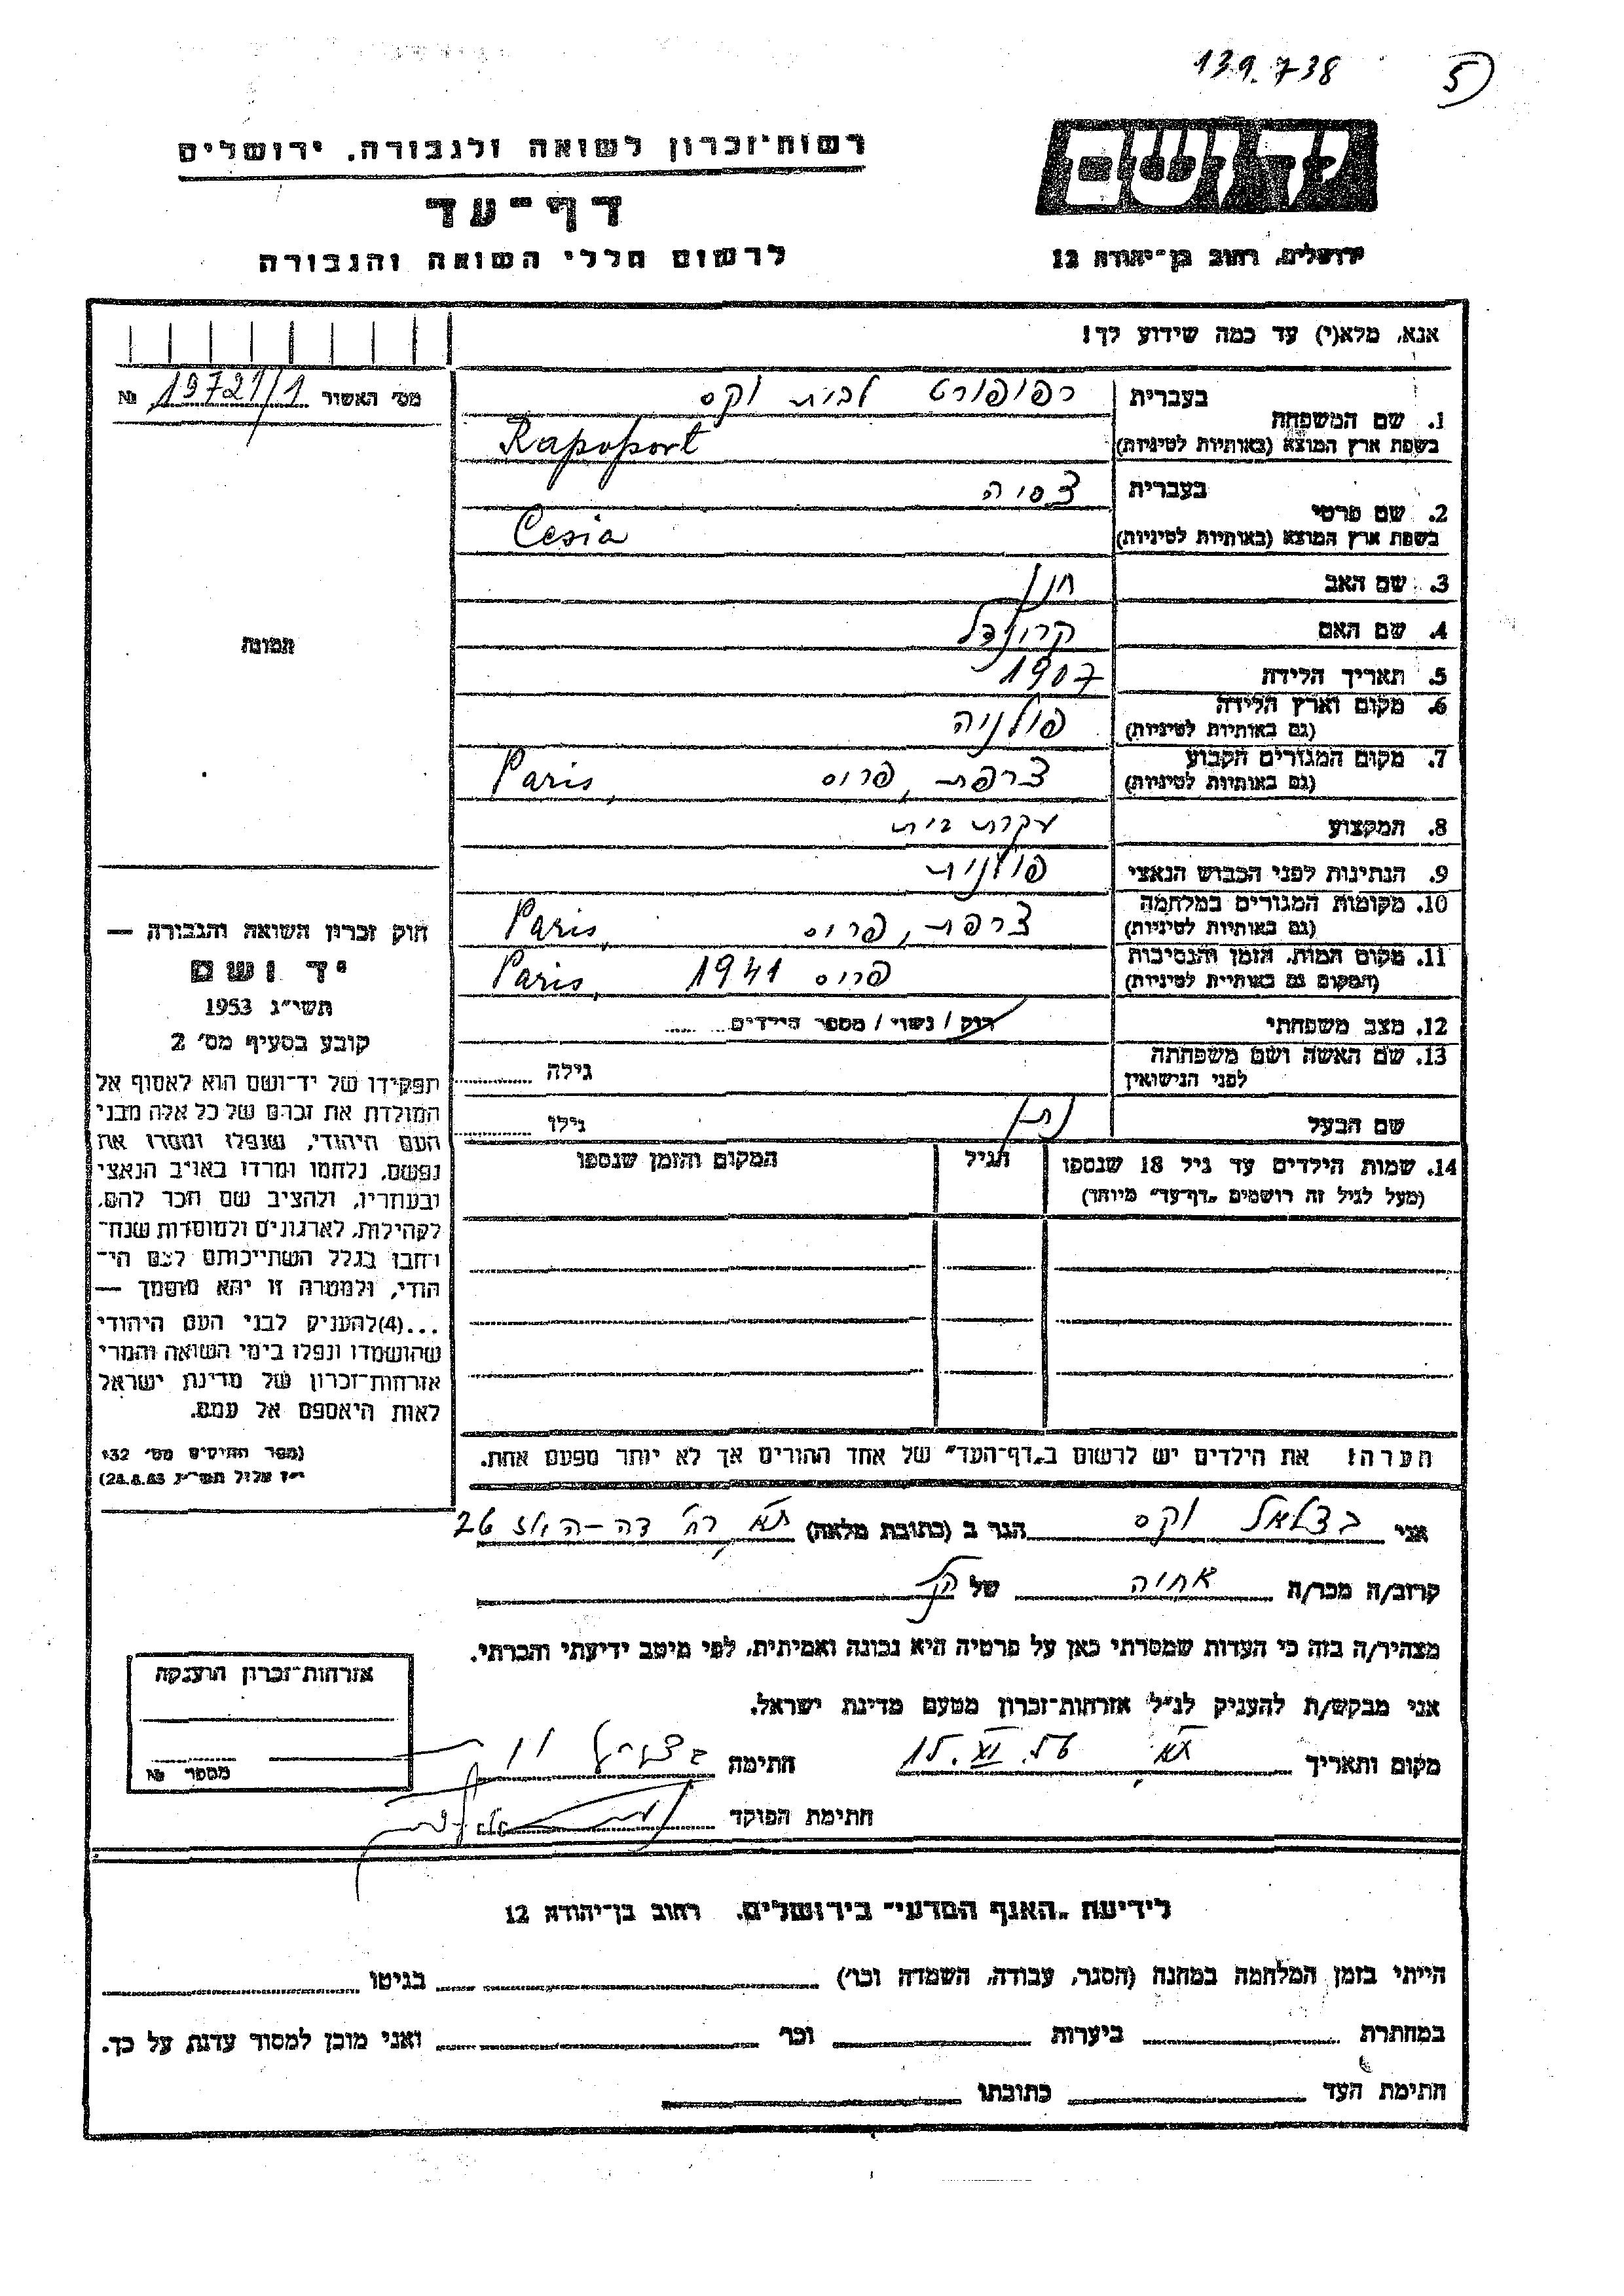 139.738
5
רשות־זכרון לשואה ולגבורה. ירושלים
דף־עד
לרשום חללי השואה והגבורה
יד ושם
ירושלים, רחוב בן־יהודה 12
אנא, מלא(י) עד כמה שידוע לך!
מס׳ האשור 19721/1 №
1. שם המשפחה
בעברית רפופורט לבית וקס
בשפת ארץ המוצא (באותיות לטיניות) Rapoport
2. שם פרטי
בעברית צסיה
בשפת ארץ המוצא (באותיות לטיניות) Cesia
3. שם האב חנן
4. שם האם קרונדל
5. תאריך הלידה 1907
6. מקום וארץ הלידה
(גם באותיות לטיניות) פולניה
7. מקום המגורים הקבוע
(גם באותיות לטיניות) צרפת, פריס Paris,
8. המקצוע עקרת בית
9. הנתינות לפני הכבוש הנאצי פולנית
10. מקומות המגורים במלחמה
(גם באותיות לטיניות) צרפת, פריס Paris,
11. מקום המות, הזמן והנסיבות
(המקום גם באותיות לטיניות) פריס 1941 Paris,
12. מצב משפחתי רוק / נשוי / מספר הילדים
13. שם האשה ושם משפחתה
לפני הנישואין גילה
שם הבעל נתן גילו
14. שמות הילדים עד גיל 18 שנספו
(מעל לגיל זה רושמים „דף־עד" מיוחד)
הגיל
המקום והזמן שנספו
הערה! את הילדים יש לרשום ב„דף־העד" של אחד ההורים אך לא יותר מפעם אחת.
תמונה
חוק זכרון השואה והגבורה —
יד ושם
תשי"ג 1953
קובע בסעיף מס׳ 2
תפקידו של יד־ושם הוא לאסוף אל
המולדת את זכרם של כל אלה מבני
העם היהודי, שנפלו ומסרו את
נפשם, נלחמו ומרדו באויב הנאצי
ובעוזריו, ולהציב שם וזכר להם,
לקהילות, לארגונים ולמוסדות שנח־
רבו בגלל השתייכותם לעם הי־
הודי, ולמטרה זו יהא מוסמך —
...(4)להעניק לבני העם היהודי
שהושמדו ונפלו בימי השואה והמרי
אזרחות־זכרון של מדינת ישראל
לאות היאספם אל עמם.
(ספר החוקים מס׳ 132
י"ז אלול תשי"ג 28.8.53)
אני בצלאל וקס הגר ב (כתובת מלאה) תא רח׳ דה־הוז 26
קרוב/ה מכר/ה אחיה של הנ"ל
מצהיר/ה בזה כי העדות שמסרתי כאן על פרטיה היא נכונה ואמיתית, לפי מיטב ידיעתי והכרתי.
אני מבקש/ת להעניק לנ"ל אזרחות־זכרון מטעם מדינת ישראל.
מקום ותאריך תא 15.VI.56 חתימה
חתימת הפוקד
אזרחות־זכרון הוענקה
מספר №
לידיעת „האגף המדעי" בירושלים. רחוב בן־יהודה 12
הייתי בזמן המלחמה במחנה (הסגר, עבודה, השמדה וכו׳) בגיטו
במחתרת ביערות וכו׳ ואני מוכן למסור עדות על כך.
חתימת העד כתובתו